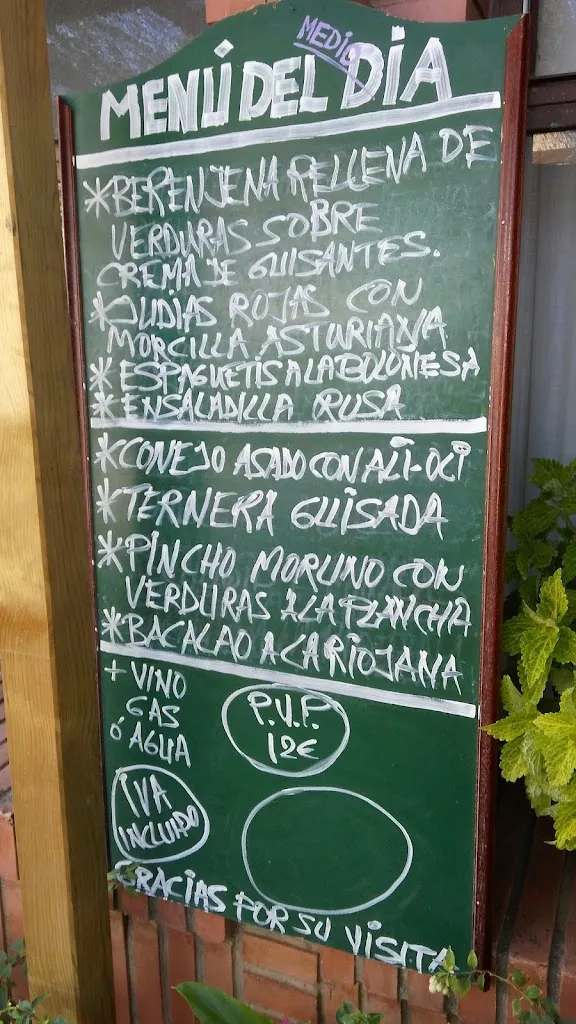 MENÚ DEL MEDIO DÍA
*BERENJENA RELLENA DE
VERDURAS SOBRE
CREMA DE GUISANTES.
*JUDIAS ROJAS CON
MORCILLA ASTURIANA
*ESPAGUETIS A LA BOLOÑESA
*ENSALADILLA RUSA
*CONEJO ASADO CON ALI-OLI
*TERNERA GUISADA
*PINCHO MORUNO CON
VERDURAS A LA PLANCHA
*BACALAO A LA RIOJANA
+ VINO
GAS
ó AGUA
P.V.P.
12€
IVA
INCLUIDO
GRACIAS POR SU VISITA